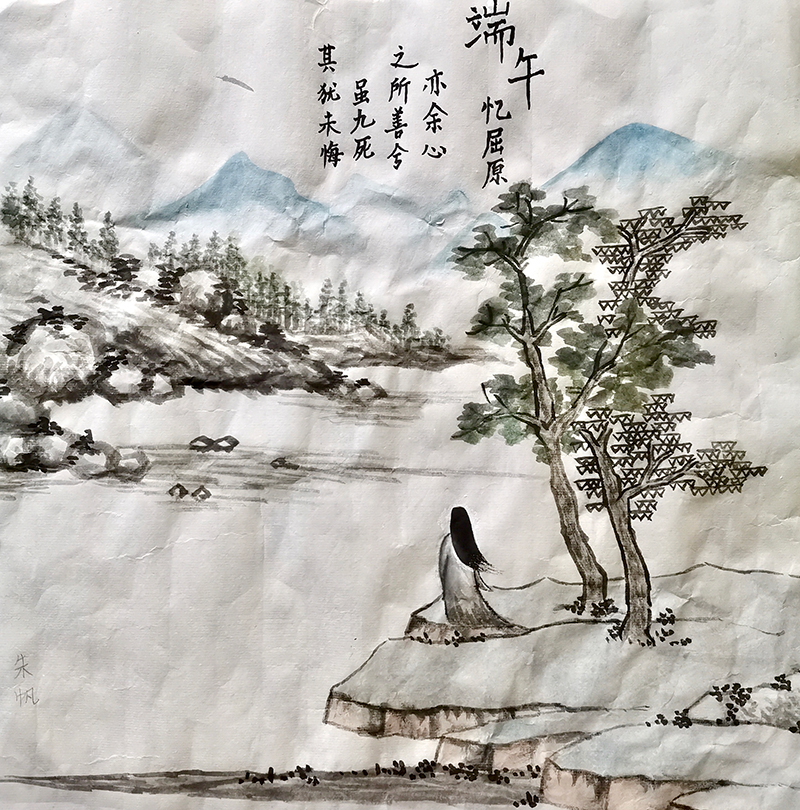 端午
忆屈原
亦余心
之所善兮
虽九死
其犹未悔
朱帆